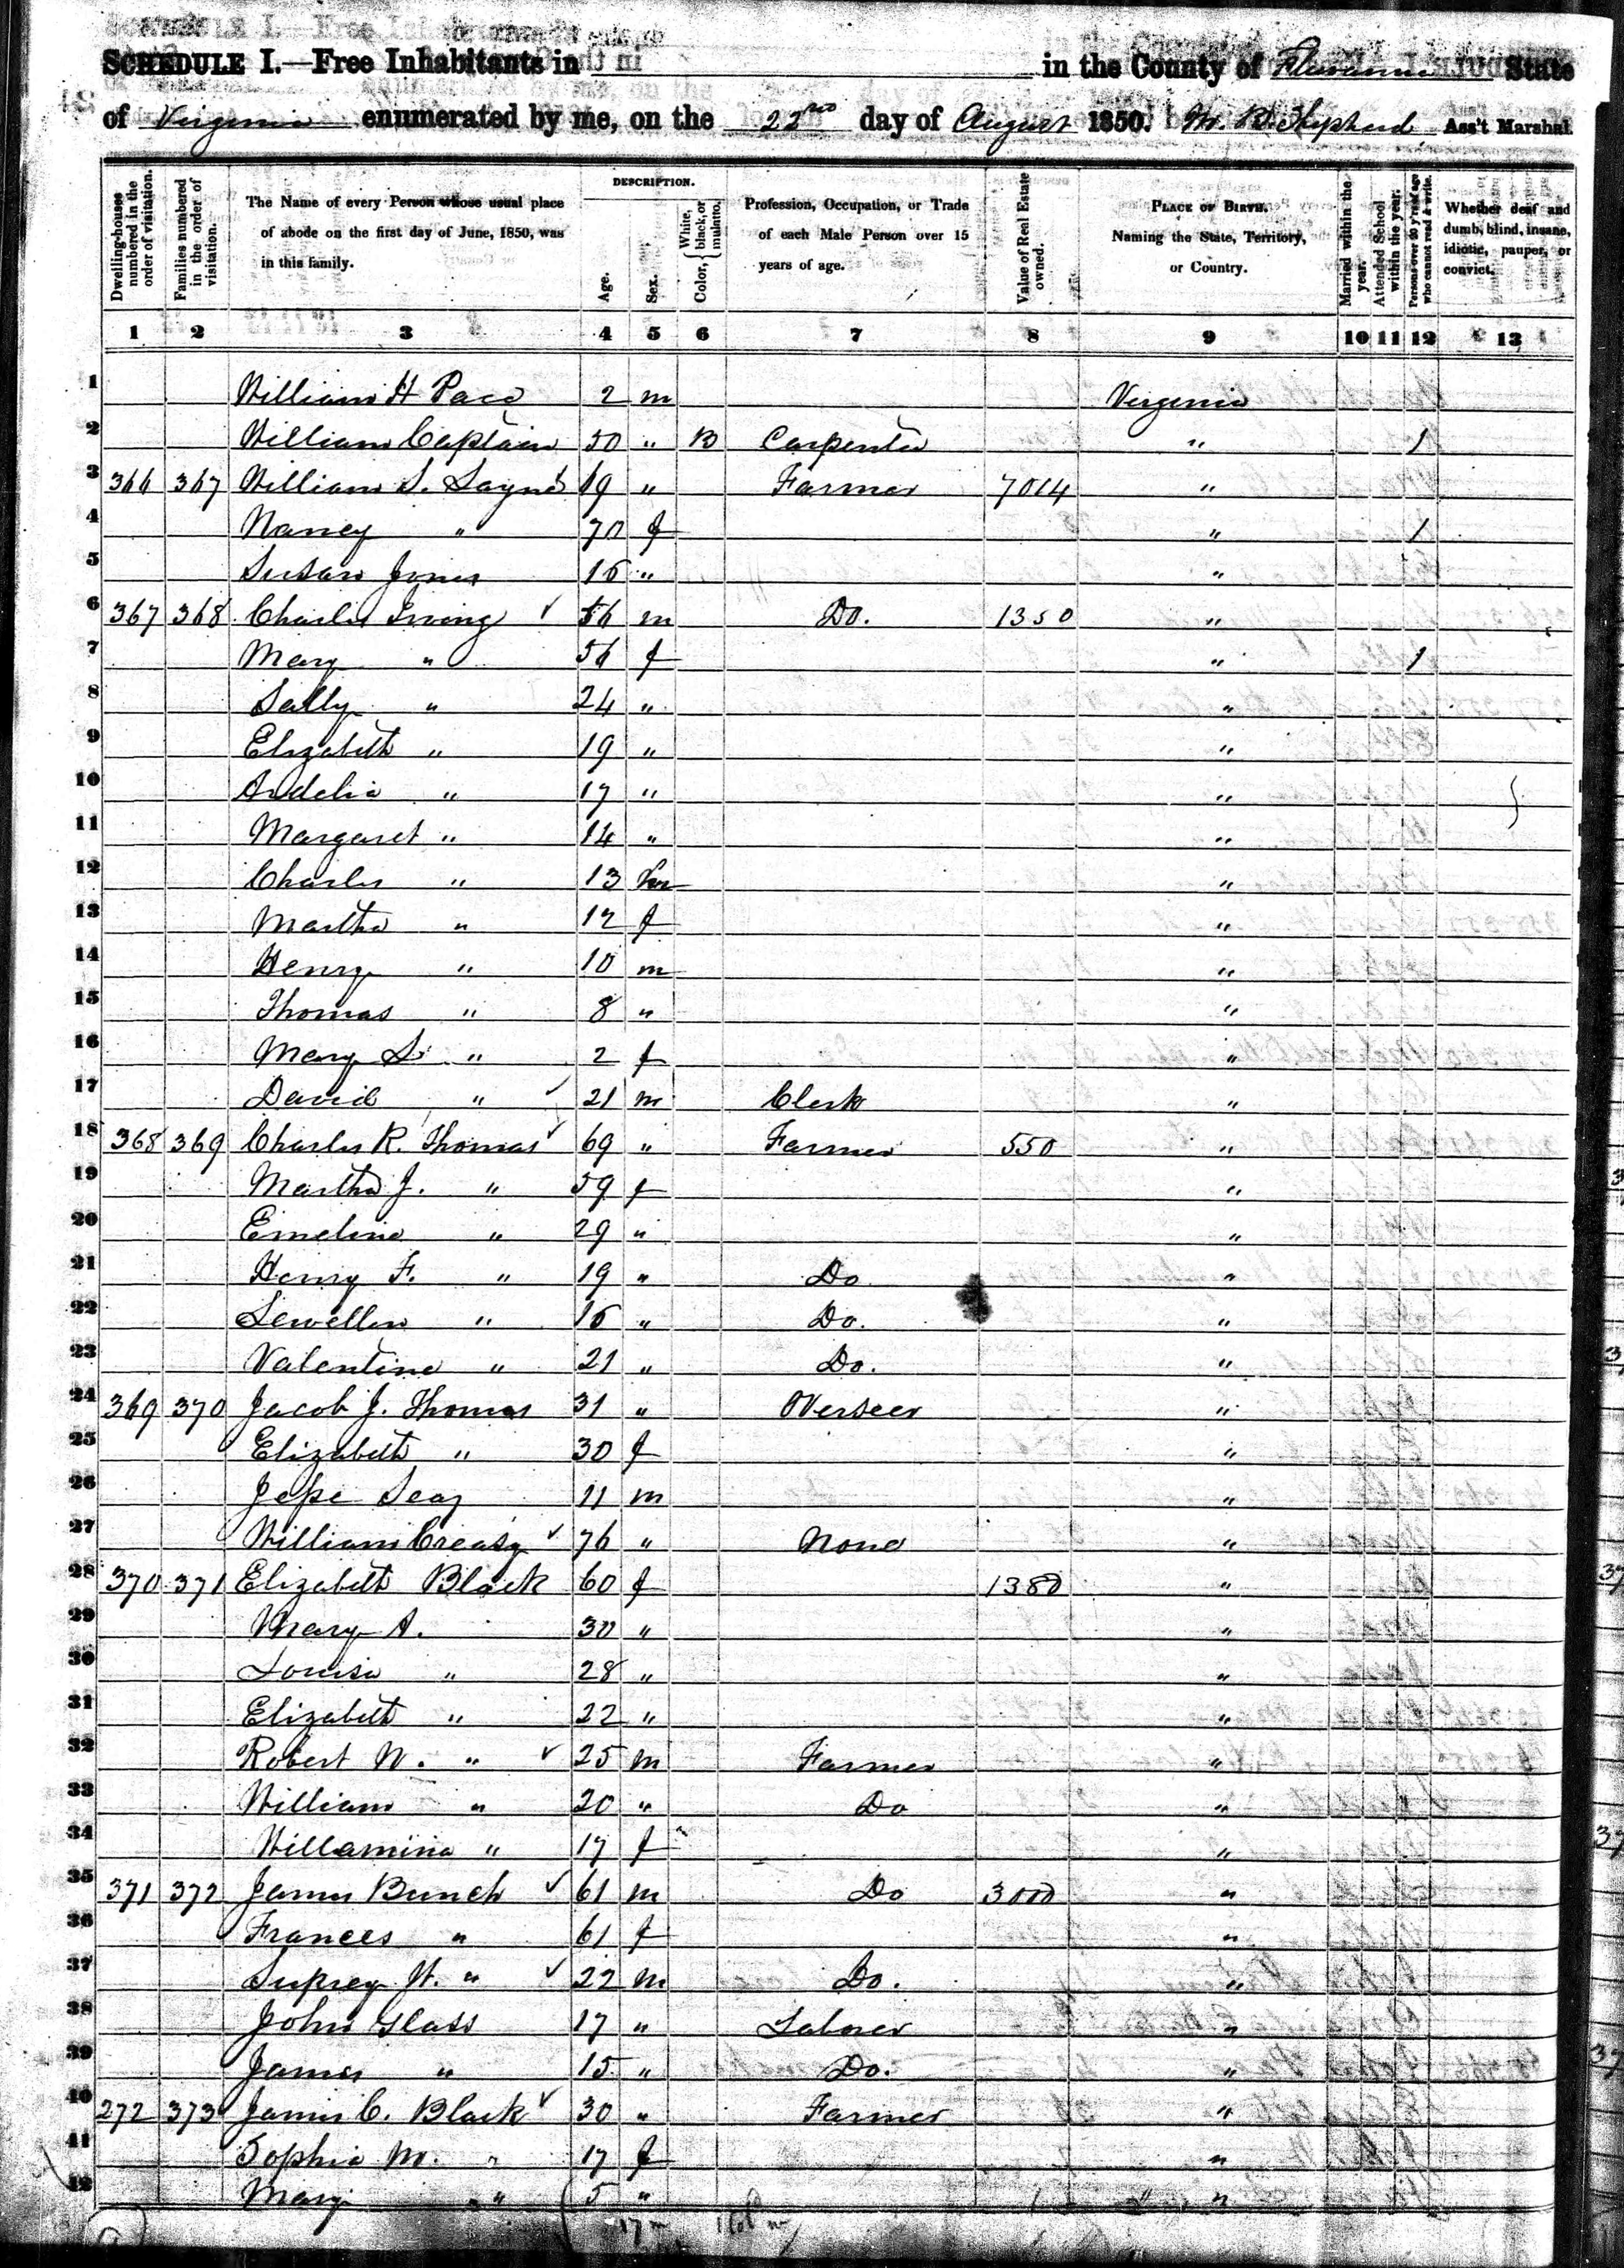 SCHEDULE I.—Free Inhabitants in in the County of Fluvanna State
of Virginia enumerated by me, on the 22nd day of August 1850. Wm. B. Shepherd Ass't Marshal.
Dwelling-houses numbered in the order of visitation.
Families numbered in the order of visitation.
The Name of every Person whose usual place of abode on the first day of June, 1850, was in this family.
DESCRIPTION.
Age.
Sex.
Color, { White, black, or mulatto.
Profession, Occupation, or Trade of each Male Person over 15 years of age.
Value of Real Estate owned.
PLACE OF BIRTH. Naming the State, Territory, or Country.
Married within the year.
Attended School within the year.
Persons over 20 y'rs of age who cannot read & write.
Whether deaf and dumb, blind, insane, idiotic, pauper, or convict.
1 2 3 4 5 6 7 8 9 10 11 12 13
1 William H Pace 2 m Virginia
2 William Captain 50 " B Carpenter " 1
3 366 367 William S. Layne 69 " Farmer 7014 "
4 Nancy " 70 f " 1
5 Susan Jones 16 " "
6 367 368 Charles Irving ✓ 56 m Do. 1350 "
7 Mary " 56 f " 1
8 Sally " 24 " "
9 Elizabeth " 19 " "
10 Ardelia " 17 " "
11 Margaret " 14 " "
12 Charles " 13 m "
13 Martha " 12 f "
14 Henry " 10 m "
15 Thomas " 8 " "
16 Mary S. " 2 f "
17 David " ✓ 21 m Clerk "
18 368 369 Charles R. Thomas ✓ 69 " Farmer 550 "
19 Martha J. " 59 f "
20 Emeline " 29 " "
21 Henry F. " 19 " Do "
22 Lewellen " 16 " Do. "
23 Valentine " 21 " Do. "
24 369 370 Jacob J. Thomas 31 " Overseer "
25 Elizabeth " 30 f "
26 Jesse Seay 11 m "
27 William Creasy ✓ 76 " None "
28 370 371 Elizabeth Black 60 f 1380 "
29 Mary A. 30 " "
30 Louisa " 28 " "
31 Elizabeth " 22 " "
32 Robert N. " ✓ 25 m Farmer "
33 William " 20 " Do "
34 Willamina " 17 f "
35 371 372 James Bunch ✓ 61 m Do 3000 "
36 Frances " 61 f "
37 " ✓ 22 m Do. "
38 John Glass 17 " Laborer "
39 James " 15 " Do. "
40 272 373 James C. Black ✓ 30 " Farmer "
41 Sophia M. " 17 f "
42 Mary " 5 " "